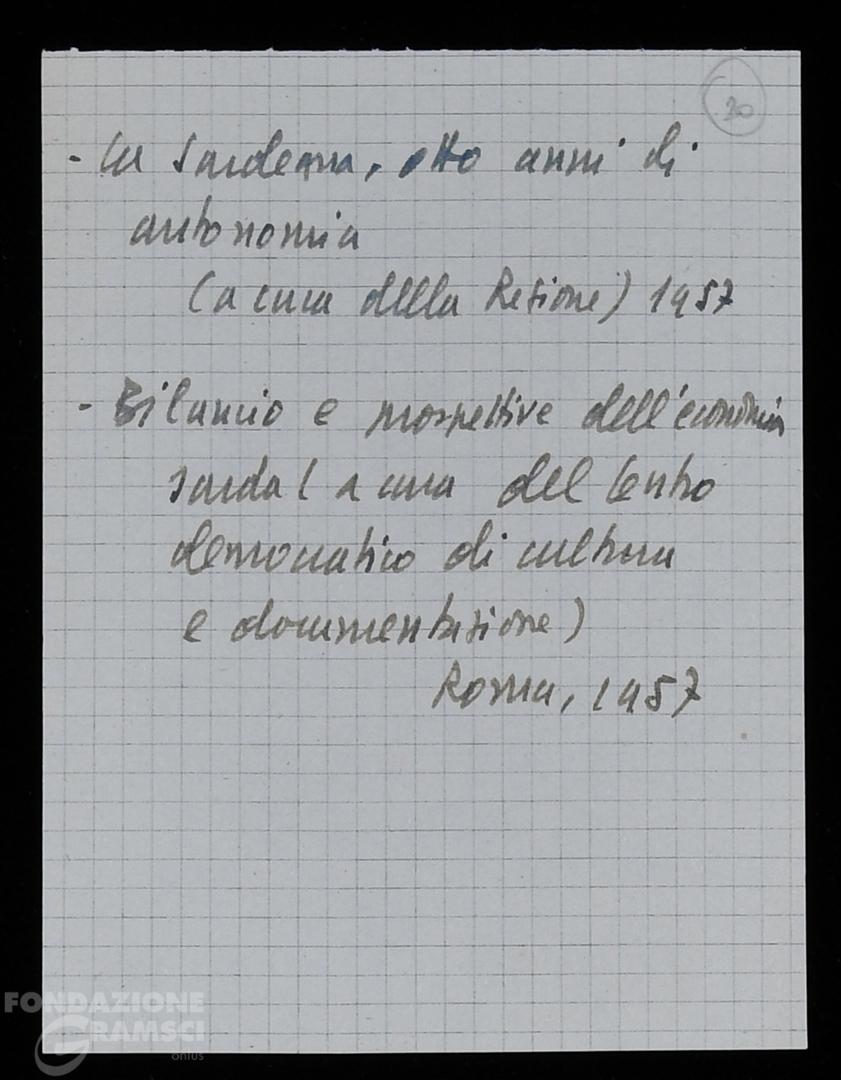 20
- La Sardegna, otto anni di
autonomia
(a cura della Regione) 1957
- Bilancio e prospettive dell'economia
sarda (a cura del Centro
democratico di cultura
e documentazione)
Roma, 1957
FONDAZIONE
GRAMSCI
onlus